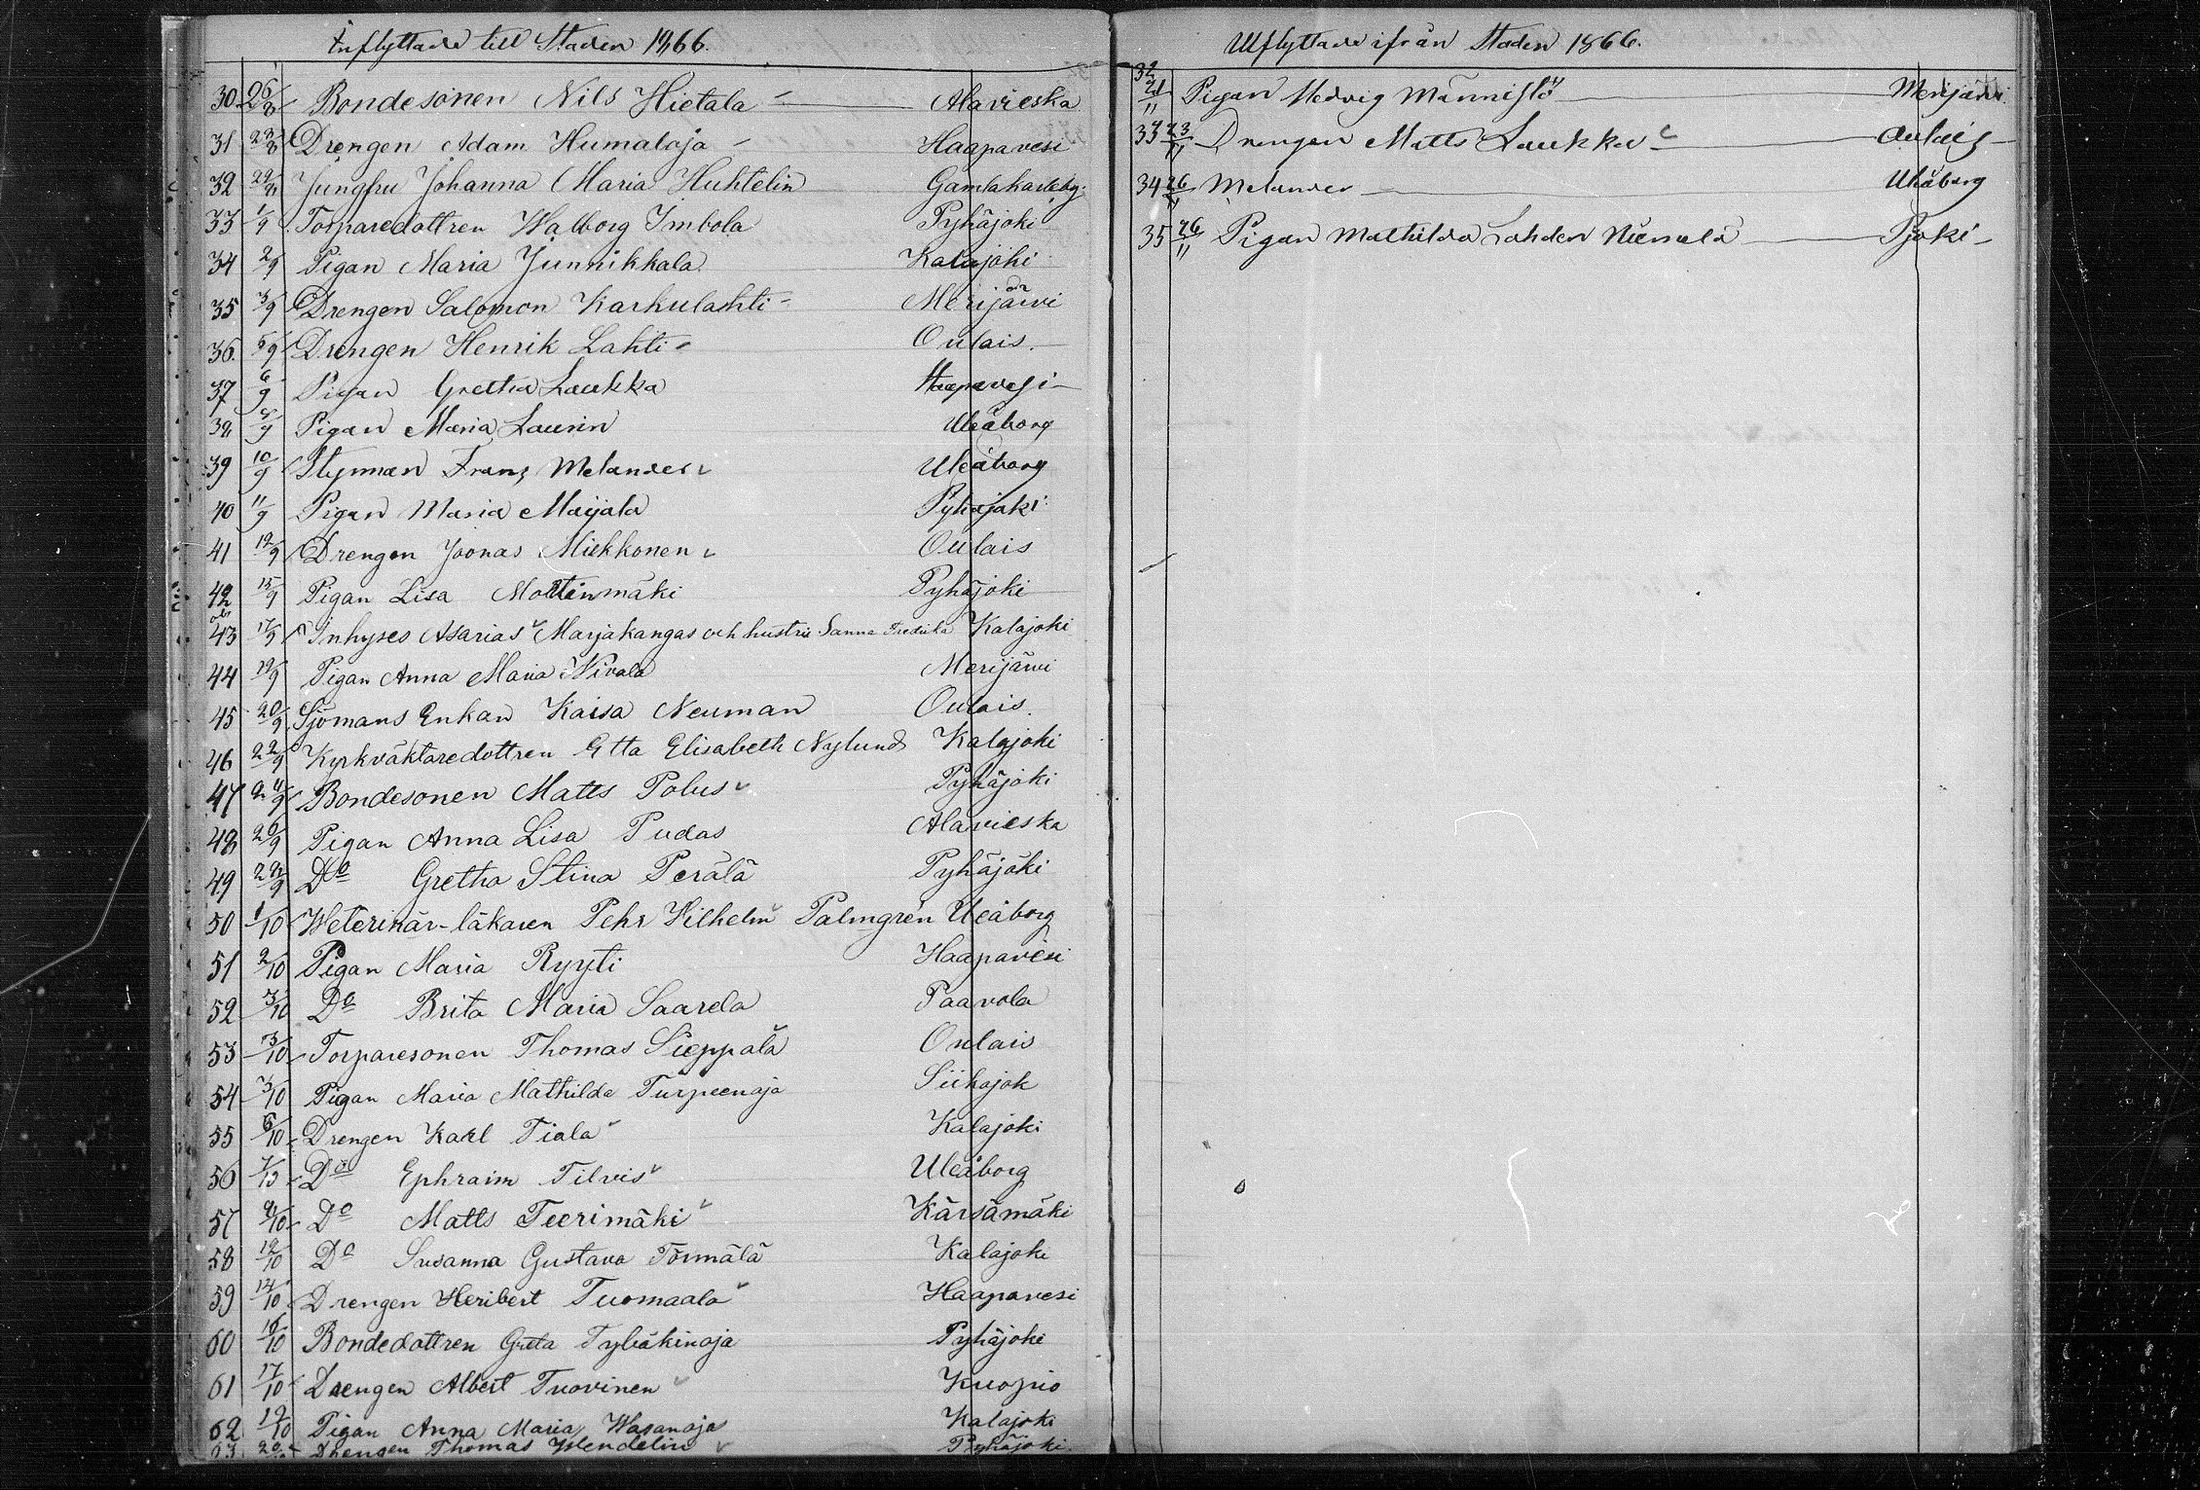 Inflyttade till Staden 1866.
30 26/8 Bondesonen Nils Hietala Alavieska
31 28/8 Drengen Adam Humaloja Haapavesi
32 29/8 Jungfru Johanna Maria Huhtelin Gamlakarleby
33 1/9 Torparedottren Walborg Imbola Pyhäjoki
34 2/9 Pigan Maria Junnikkala Kalajoki
35 3/9 Drengen Salomon Karkulahti Merijärvi
36 5/9 Drengen Henrik Lahti Oulais
37 6/9 Pigan Gretha Laukka Haapavesi
38 /9 Pigan Maria Laurin Uleåborg
39 10/9 Styrman Franz Melander Uleåborg
40 11/9 Pigan Maria Maijala Pyhäjoki
41 12/9 Drengen Joonas Miekkonen Oulais
42 15/9 Pigan Lisa Pyhäjoki
43 17/9 Inhyses Asarias Marjakangas och hustru Sanna Kalajoki
44 19/9 Pigan Anna Maria Nivala Merijärvi
45 20/9 Sjömans Enkan Kaisa Neuman Oulais
46 22/9 Kyrkväktaredottren Etta Elisabeth Nylund Kalajoki
47 24/9 Bondesonen Matts Polus Pyhäjoki
48 26/9 Pigan Anna Lisa Pudas Alavieska
49 28/9 Do Gretha Stina Perälä Pyhäjoki
50 1/10 Weterinär-läkaren Pehr Wilhelm Palmgren Uleåborg
51 2/10 Pigan Maria Ryyti Haapavesi
52 3/10 Do Brita Maria Saarela Paavola
53 3/10 Torparesonen Thomas Sieppälä Oulais
54 3/10 Pigan Maria Mathilda Turpeenoja Siikajok
55 6/10 Drengen Karl Tiala Kalajoki
56 Do Ephraim Tilvis Uleåborg
57 9/10 Do Matts Teerimäki Kärsämäki
58 12/10 Do Susanna Gustava Törmälä Kalajoki
59 14/10 Drengen Heribert Tuomaala Haapavesi
60 16/10 Bondedottren Greta Pyhäjoki
61 17/10 Drengen Albert Tuovinen Kuopio
62 19/10 Pigan Anna Maria Wasanoja Kalajoki
63 Drengen Thomas Wendelin Pyhäjoki
Utflyttade ifrån Staden 1866.
32 21/11 Pigan Hedvig Männistö Merijärvi
33 23/11 Drengen Matts Laukka Oulais
34 26/11 Melander Uleåborg
35 26/11 Pigan Mathilda Lahden Niemelä Pjoki